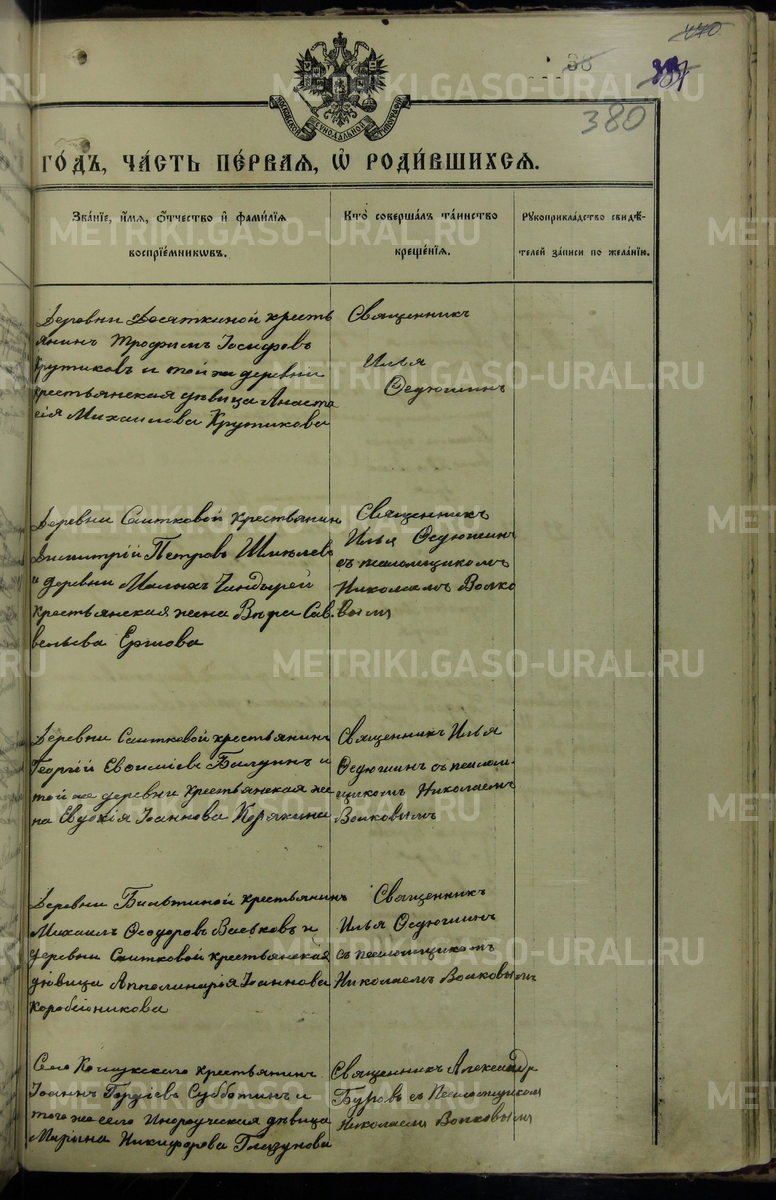 440
38
387
380
МОСКОВСКОЙ СѴНОДАЛЬНОЙ ТИПОГРАФІИ
ГОДЪ, ЧАСТЬ ПЕРВАЯ, Ѡ РОДИВШИХСЯ.
Званіе, имя, отчество и фамилія воспріемниковъ.
Кто совершалъ таинство крещенія.
Рукоприкладство свидѣтелей записи по желанію.
Деревни Десяткиной кресть
янинъ Трофимъ Іосифовъ
Крутиковъ и той же деревни
крестьянская дѣвица Анаста
сія Михаилова Крутикова
Священникъ
Илья
Ѳедюшинъ
Деревни Саитковой крестьянин
Димитрій Петровъ
и деревни Малыхъ
крестьянская жена Вѣра Сав.
вельева Ершова
Священникъ
Илья Ѳедюшинъ
съ псаломщикомъ
Николаемъ Волко
вымъ
Деревни Саитковой крестьянинъ
Георгій Евѳиміевъ и
той же деревни крестьянская же
на Евдокія Іоаннова Корякина
Священникъ Илья
Ѳедюшинъ съ псалом
щикомъ Николаемъ
Волковымъ
Деревни крестьянинъ
Михаилъ Ѳеодоровъ Васьковъ и
деревни Саитковой крестьянская
дѣвица Апполинарія Іоаннова
Коробейникова
Священникъ
Илья Ѳедюшинъ
съ псаломщикомъ
Николаемъ Волковымъ
Село крестьянинъ
Іоаннъ Гордіевъ Субботинъ и
того же село дѣвица
Марѳина Никифорова Глазунова
Священникъ Александр
Буровъ съ Псаломщикомъ
Николаемъ Волковымъ
METRIKI.GASO-URAL.RU